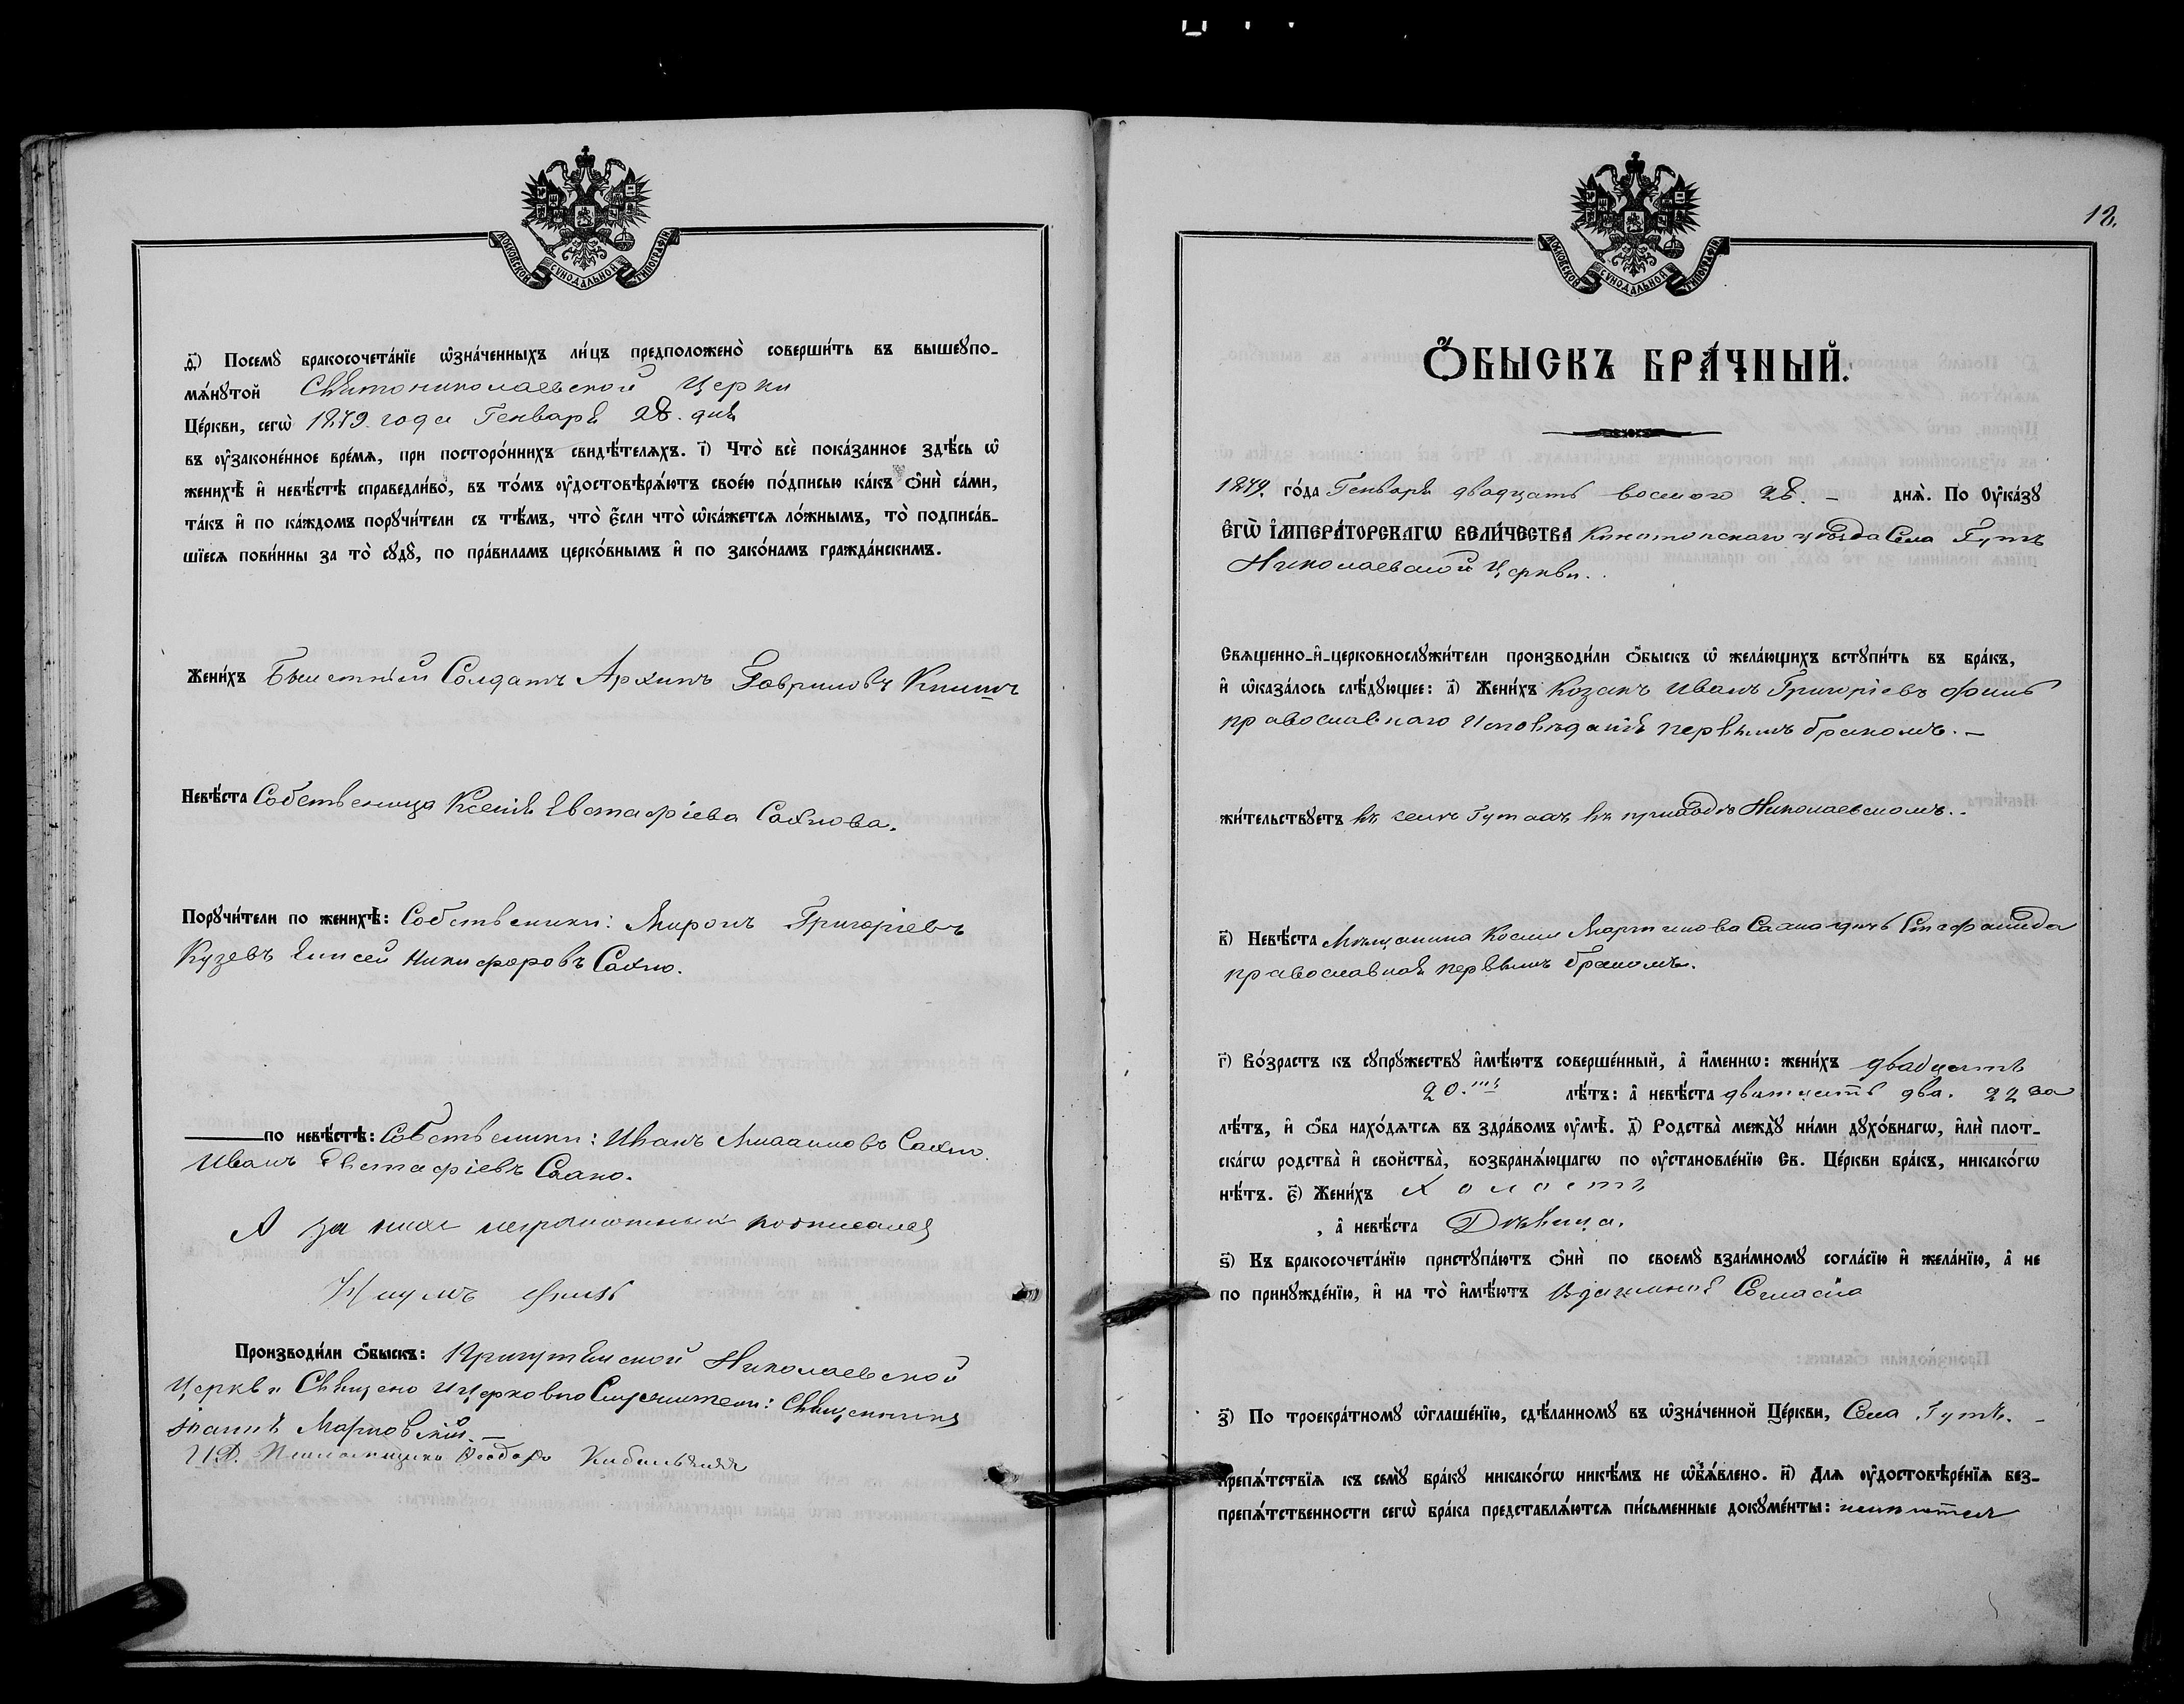 МОСКОВСКОЙ СѴНОДАЛЬНОЙ ТИПОГРАФІИ
д҃) Посемꙋ̀ бракосочета́нїе ѡ҆зна́ченныхъ ли́цъ предположено̀ соверши́ть въ вышеꙋпо-
мѧ́нꙋтой Свѧтониколаевской Церкви
Це́ркви, сегѡ̀ 1879. года Генваря 28. дня
въ ᲂу҆законе́нное вре́мѧ, при посторо́ннихъ свидѣ́телѧхъ. і҃) Что̀ всѐ пока́занное здѣ́сь ѡ҆
женихѣ̀ и҆ невѣ́стѣ справедли́во, въ то́мъ ᲂу҆достовѣрѧ́ютъ свое́ю по́дписью ка́къ ѻ҆нѝ са́ми,
та́къ и҆ по ка́ждомъ порꙋчи́тели съ тѣ́мъ, что̀ є҆́сли что̀ ѡ҆ка́жетсѧ ло́жнымъ, то̀ подписа́в-
шїесѧ пови́нны за то̀ сꙋдꙋ̀, по пра́виламъ церко́внымъ и҆ по зако́намъ гражда́нскимъ.
Жени́хъ Солдатъ Архипъ Гавриловъ
Невѣ́ста Собственица Ксенія Евстафіева Сахнова.
Порꙋчи́тели по женихѣ̀: Собственики: Миронъ Григоріевъ
Кузевъ Елисей Никифоровъ Сахно.
по невѣ́стѣ: Собственики: Иванъ Сахно.
Иванъ Евстафіевъ Сахно.
А за них неграмотных подписался
Наумъ
Производи́ли ѻ҆́быскъ: Николаевской
Церкви Священо и Церковно Служители: Священникъ
Іоаннъ Марковскій. –
И.Д. Псаломщика Феодоръ
12.
МОСКОВСКОЙ СѴНОДАЛЬНОЙ ТИПОГРАФІИ
Ѻ҆́БЫСКЪ БРА́ЧНЫЙ.
1879. го́да Генваря двадцать восмого 28. – днѧ̀. По Оу҆ка́зꙋ
Є҆ГѠ̀ І҆МПЕРА́ТОРСКАГѠ ВЕЛИ́ЧЕСТВА Конотопскаго уѣзда Села Гутъ
Николаевской Церкви.
Свѧщенно-и҆-церковнослꙋжи́тели производи́ли ѻ҆́быскъ ѡ҆ жела́ющихъ встꙋпи́ть въ бра́къ,
и҆ ѡ҆каза́лось слѣ́дꙋющее: а҃) Жени́хъ Козакъ Иванъ Григоріевъ
православнаго Исповѣданія первымъ бракомъ. –
жи́тельствꙋетъ въ селѣ Гутахъ въ приходѣ Николаевскомъ. –
в҃) Невѣ́ста Мѣщанина Космы Мартинова Сахна дочь Стефанида
православная первымъ бракомъ.
г҃) Во́зрастъ къ сꙋпрꙋ́жествꙋ и҆мѣ́ютъ соверше́нный, а҆ и҆́меннѡ: жени́хъ двадцать
20. лѣ́тъ: а҆ невѣ́ста дватцать два. 22
лѣ́тъ, и҆ ѻ҆́ба нахо́дѧтсѧ въ здра́вомъ ᲂу҆мѣ̀. д҃) Родства̀ междꙋ̀ ни́ми дꙋхо́внагѡ, и҆лѝ плот-
ска́гѡ родства̀ и҆ сво́йства, возбранѧ́ющагѡ по ᲂу҆становле́нїю Св. Це́ркви бра́къ, никако́гѡ
нѣ́тъ. є҃) Жени́хъ Холостъ
, а҆ невѣ́ста Дѣвица.
ѕ҃) Къ бракосочета́нїю пристꙋпа́ютъ ѻ҆нѝ по своемꙋ̀ взаи́мномꙋ согла́сїю и҆ жела́нїю, а҆ не
по принꙋжде́нїю, и҆ на то̀ и҆мѣ́ютъ Согласіе
з҃) По троекра́тномꙋ ѡ҆глаше́нїю, сдѣ́ланномꙋ въ ѡ҆зна́ченной Це́ркви, Села Гутъ. –
препѧ́тствїѧ къ семꙋ̀ бра́кꙋ никако́гѡ никѣ́мъ не ѡ҆б̾ѧ́влено. и҃) Длѧ ᲂу҆достовѣре́нїѧ без-
препѧ́тственности сегѡ̀ бра́ка представлѧ́ютсѧ пи́сьменные докꙋме́нты: